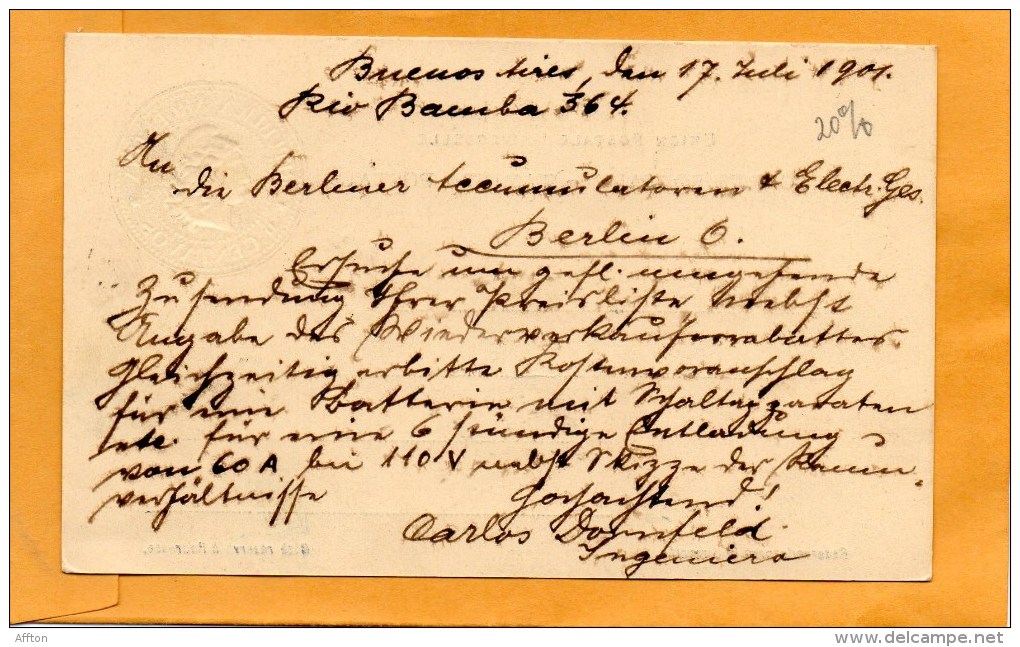 Buenos Aires, den 17. Juli 1901.
Rio Bamba 364.
20%
An
die Berliner Accumulatoren & Electr. Ges.
Berlin O.
Ersuche um gefl. umgehende
Zusendung Ihrer Preisliste nebst
Angabe des Wiederverkäuferrabattes.
Gleichzeitig erbitte Kostenvoranschlag
für eine Batterie mit Schaltapparaten
etc. für eine 6 stündige Entladung
von 60 A bei 110 V nebst Skizze der Raum-
verhältnisse
Hochachtend!
Carlos Dornfeld
Ingeniero
Affton
www.delcampe.net